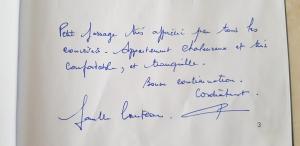 Petit passage très apprécié par tous les
convives. Appartement chaleureux et très
confortable, et tranquille.
Bonne continuation.
Cordialement.
Famille
3